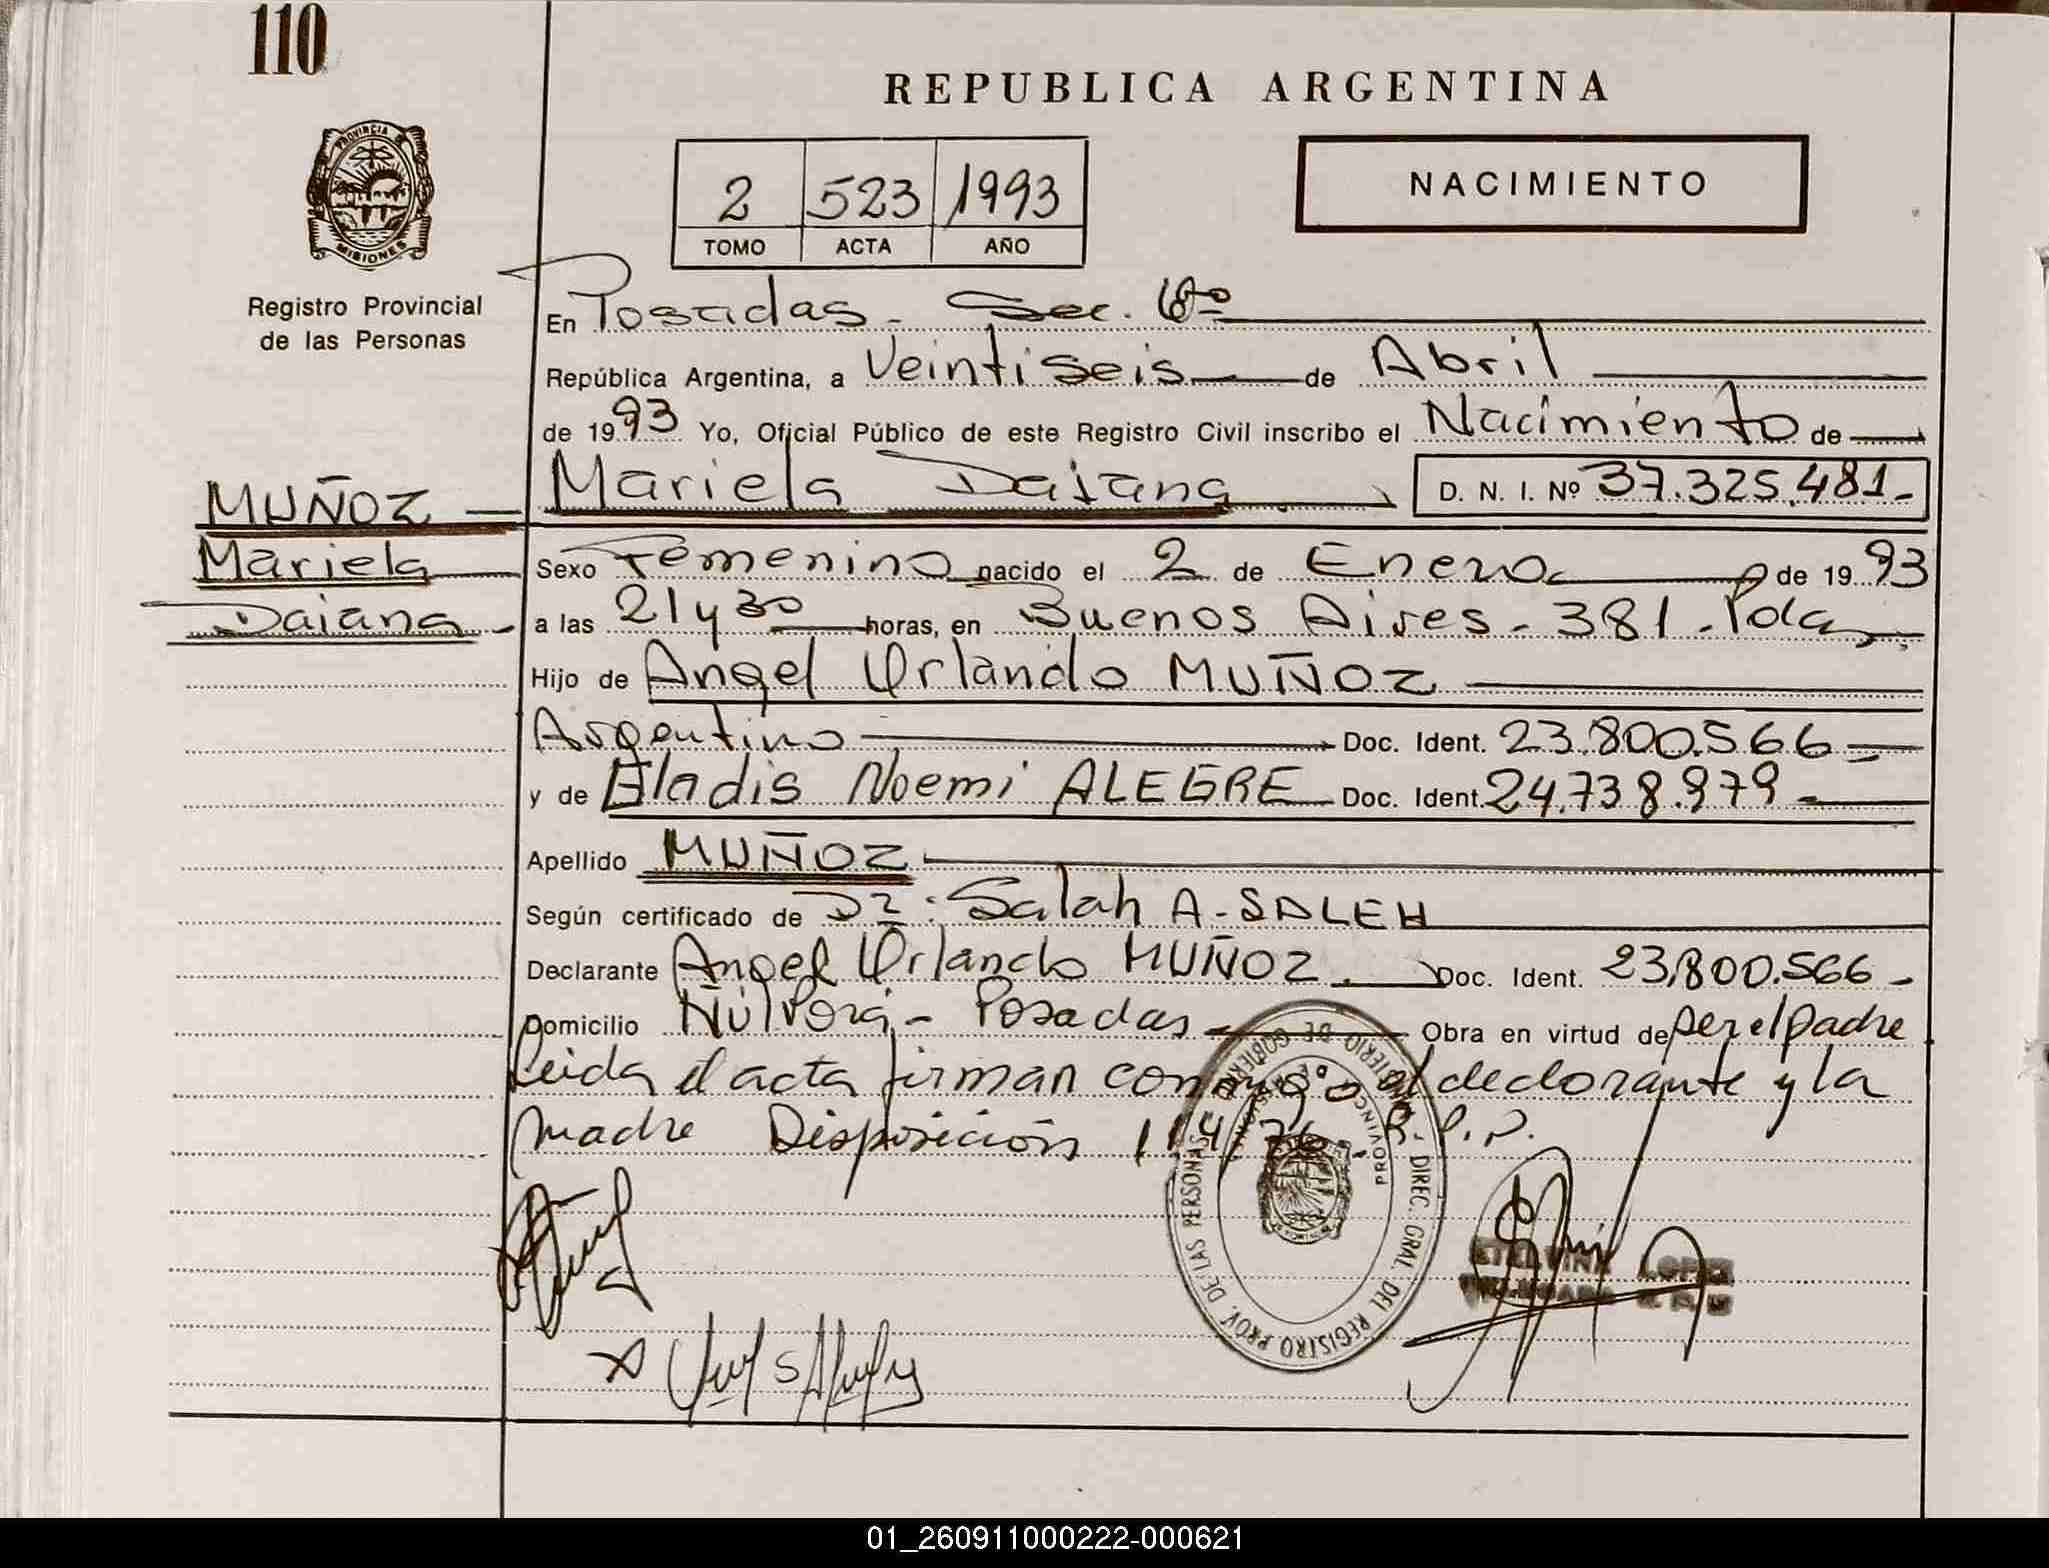 110
REPUBLICA ARGENTINA
PROVINCIA DE
MISIONES
Registro Provincial
de las Personas
2 523 1993
TOMO ACTA AÑO
NACIMIENTO
En Posadas - Sec. 6º
República Argentina, a Veintiseis de Abril
de 1993 Yo, Oficial Público de este Registro Civil inscribo el Nacimiento de
MUÑOZ Mariela Daiana D. N. I. Nº 37.325.481-
Mariela Sexo Femenino nacido el 2 de Enero de 1993
Daiana a las 21 y 30 horas, en Buenos Aires - 381 - Pdas
Hijo de Angel Orlando MUÑOZ
Argentino Doc. Ident. 23.800.566
y de Gladis Noemi ALEGRE Doc. Ident. 24.738.979-
Apellido MUÑOZ
Según certificado de Dr: Salah A. SALEH
Declarante Angel Orlando MUÑOZ. Doc. Ident. 23.800.566-
Domicilio Posadas Obra en virtud de ser el padre
Leida el acta firman conmigo el declarante y la
madre Disposición 114/76 R.P.P.
DIREC. GRAL. DEL REGISTRO PROV. DE LAS PERSONAS
LOPEZ
01_260911000222-000621